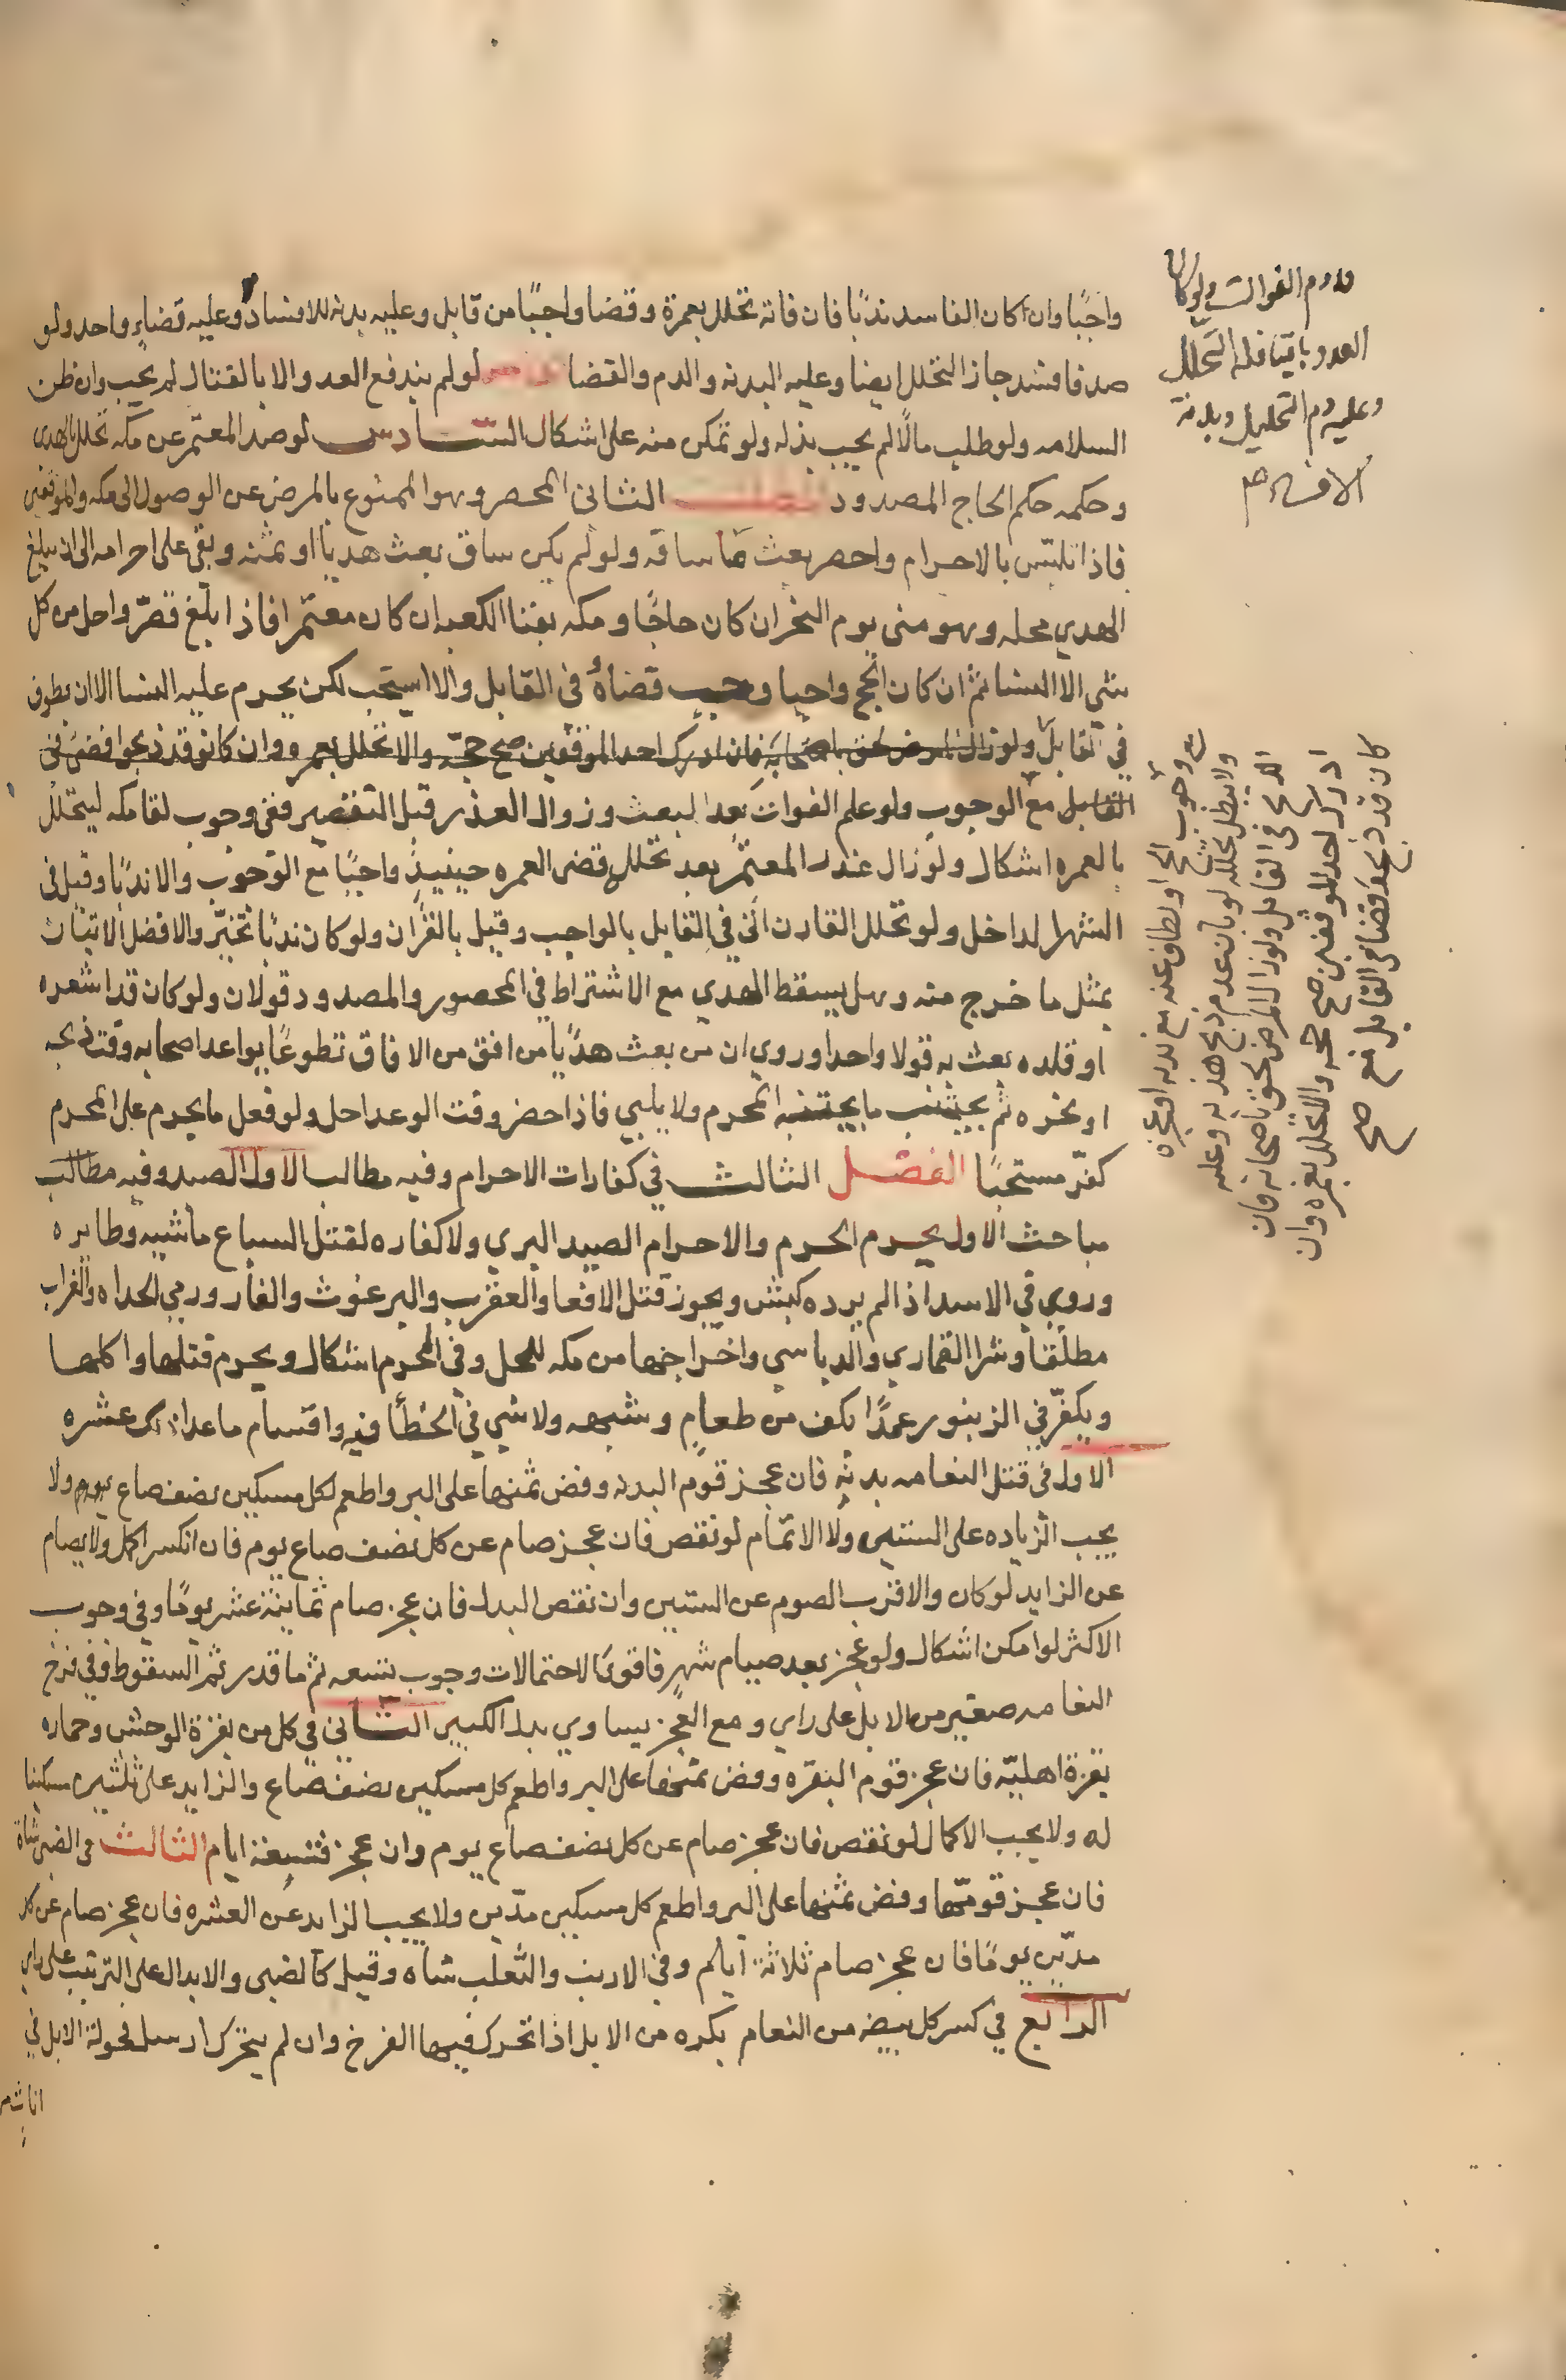 واجبًا وان كان الفاسد ندبًا فان فاته تحلل بعمرة وقضا واجبًا من قابل وعليه بدنه للافساد وعليه قضاءٍ واحد ولو
صد فافسد جاز التحلل ايضا وعليه البدنه والدم والقضا لو لم يندفع العدو الا بالقتال لم يجب وان ظن
السلامه ولو طلب مالًا لم يجب بذله ولو تمكن منه على اشكال السادس لو صد المعتمر عن مكه تحلل بالهدى
وحكمه حكم الحاج المصدود المطلب الثانى المحصر وهو الممنوع بالمرض عن الوصول الى مكه والموقفين
فاذا تلبّس بالاحرام واحصر بعث ما ساقه ولو لم يكن ساق بعث هديًا او ثمنه وبقى على احرامه الى ان يبلغ
الهدي محله وهو منى يوم النحر ان كان حاجًا ومكه بفنا الكعبه ان كان معتمرا فاذا بلغ قصّر واحل من كل
شى الا النسا ثم ان كان الحج واجبا وجب قضاؤه فى القابل والا استحب لكن يحرم عليه النسا الا ان يطوف
في القابل ولو زال المرض لحق باصحابه فان ادرك احد الموقفين صح حجّه والا تحلل بعمره وان كانو قد ذبحوا قضى فى
القابل مع الوجوب ولو علم الفوات بعد البعث وزوال العذر قبل التقصير ففى وجوب لقا مكه ليتحلل
بالعمره اشكال ولو زال عذر المعتمر بعد تحلله قضى العمره حينيذٍ واجبًا مع الوجوب والا ندبًا وقيل فى
الشهر الداخل ولو تحلل القارن اتى في القابل بالواجب وقيل بالقران ولو كان ندبًا تخيّر والافضل الاتيان
بمثل ما خرج منه وهل يسقط الهدي مع الاشتراط في المحصور والمصدود قولان ولو كان قد اشعره
او قلده بعث به قولا واحدا وروي ان من بعث هديًا من افق من الافاق تطوعًا يواعد اصحابه وقت ذبحه
او نحره ثم يجتنب ما يجتنبه المحرم ولا يلبي فاذا حضر وقت الوعد احل ولو فعل ما يحرم على المحرم
كفّر مستحبًا الفصل الثالث في كفارات الاحرام وفيه مطالب الاول الصيد وفيه مطالب
مباحث الاول يحرم الحرم والاحرام الصيد البري ولا كفاره لقتل السباع ماشيه وطايره
وروي في الاسد اذا لم يرده كبش ويجوز قتل الافعا والعقرب والبرغوث والفار ورمي الحداه والغراب
مطلقا وشرا القماري والدباسي واخراجها من مكه للمحل وفى المحرم اشكال ويحرم قتلها واكلها
ويكفّر في الزنبور عمدًا بكف من طعام وشبهه ولا شي في الخطأ فيه واقسام ما عدا ذلك عشره
الاول في قتل النعامه بدنه فان عجز قوم البدنه وفض ثمنها على البر واطعم لكل مسكين نصف صاع ولا
يجب الزياده على الستين ولا الاتمام لو نقص فان عجز صام عن كل نصف صاع يوم فان انكسر اكمل ولا يصام
عن الزايد لو كان والاقرب الصوم عن الستين وان نقص البدل فان عجز صام ثمانية عشر يومًا وفى وجوب
الاكثر لو امكن اشكال ولو عجز بعد صيام شهرٍ فاقوى الاحتمالات وجوب تسعه ثم ما قدر ثم السقوط وفي فرخ
النعامه صغير من الابل على راي ومع العجز يساوي بدل الكبير الثاني في كل من بقرة الوحش وحماره
بقرة اهليّه فان عجز قوم البقره وفض ثمنها على البر واطعم كل مسكين نصف صاع والزايد على ثلثين مسكينا
له ولا يجب الاكمال لو نقص فان عجز صام عن كل نصف صاع يوم وان عجز فتسعة ايام الثالث فى الضبى شاة
فان عجز قومها وفض ثمنها على البر واطعم كل مسكين مدّين ولا يجب الزايد عن العشره فان عجز صام عن كل
مدّين يومًا فان عجز صام ثلاثة ايام وفي الارنب والثعلب شاه وقيل كالضبى والابدال على الترتيب على راي
الرابع في كسر كل بيضه من النعام بكره من الابل اذا تحرك فيها الفرخ وان لم يتحرك ارسل فحولة الابل في
اناث
ودم الفوات ولو كان
العدو باقيًا فله التحلل
وعليه دم التحليل وبدنة
الافساد صح
مع وجوب الحج او يطاف عنه مع ندبه او عجزه
ولا يبطل تحلله لو بان عدم ذبح هديه وعليه
الذبح فى القابل ولو زال المرض لحق باصحابه فان
ادرك احد الموقفين صح حجه والا تحلل بعمره وان
كان قد ذبح وقضا فى القابل مع صح